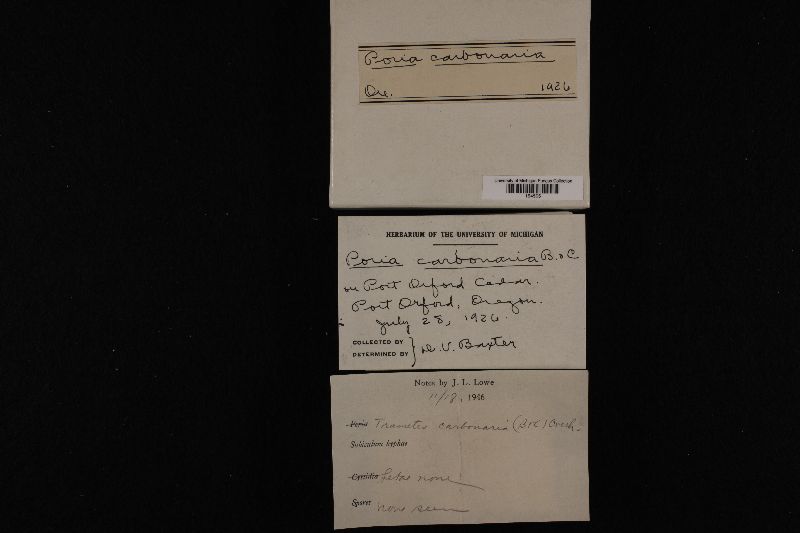 Poria carbonaria
Ore. 1926
University of Michigan Fungus Collection
HERBARIUM OF THE UNIVERSITY OF MICHIGAN
Poria carbonaria B. & C
on Port Orford Cedar.
Port Orford, Oregon.
July 28, 1926.
COLLECTED BY
DETERMINED BY
D. V. Baxter
Notes by J. L. Lowe
11/18, 1946
Poria Trametes carbonaria (B&C) Overh.
Subiculum hyphae
Cystidia Setae none
Spores none seen